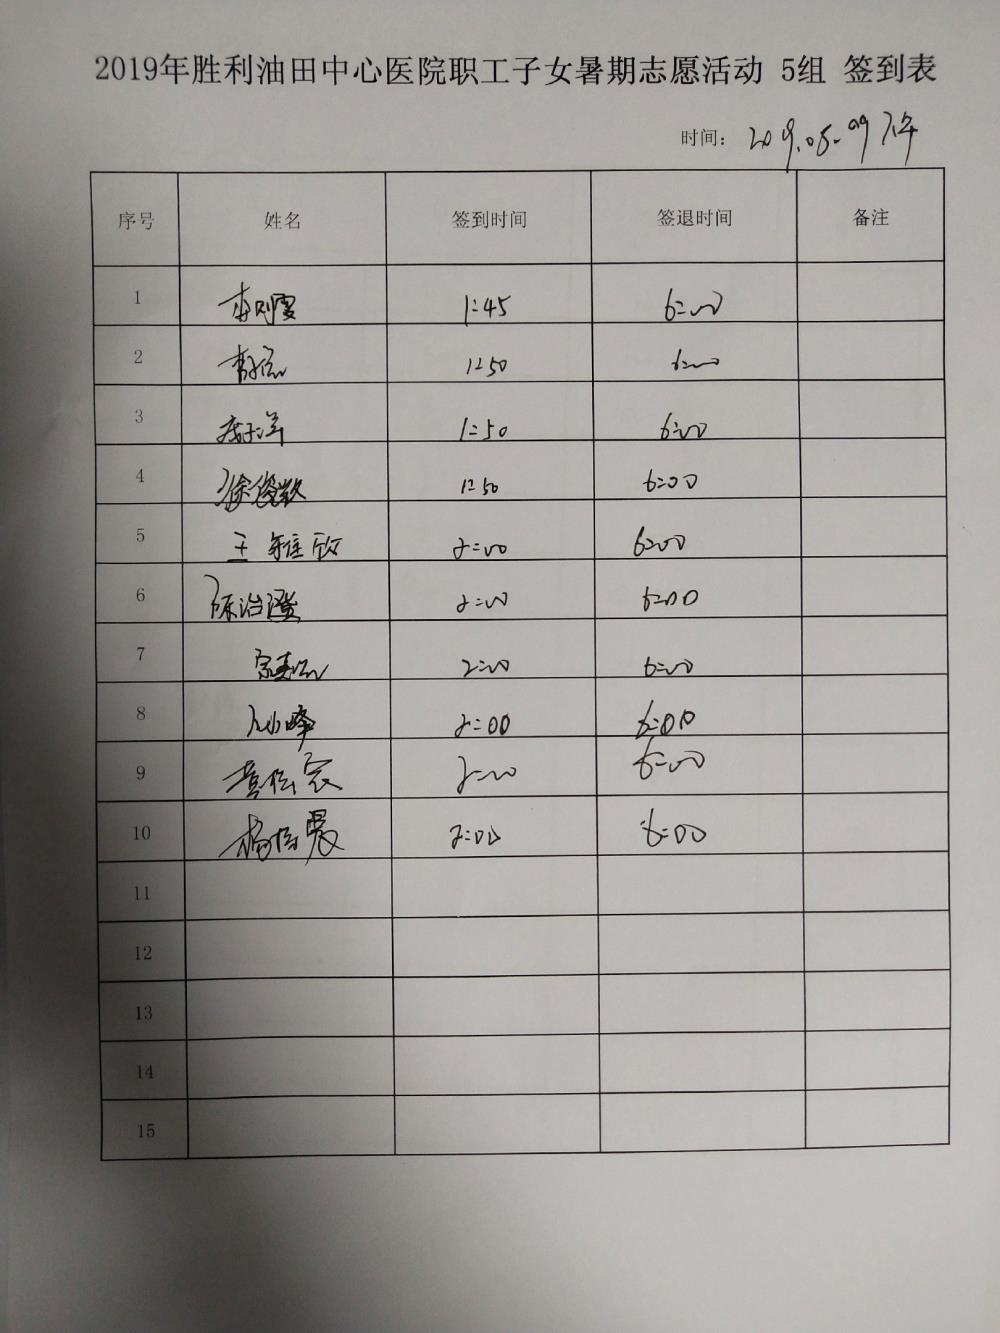 2019年胜利油田中心医院职工子女暑期志愿活动 5组 签到表
时间: 2019.08.09 下午
序号 姓名 签到时间 签退时间 备注
1 1:45 6:00
2 1:50 6:00
3 1:50 6:00
4 徐俊数 1:50 6:00
5 王 雅欣 2:00 6:00
6 陈治澄 2:00 6:00
7 2:00 6:00
8 2:00 6:00
9 2:00 6:00
10 杨梓晨 2:00 6:00
11
12
13
14
15